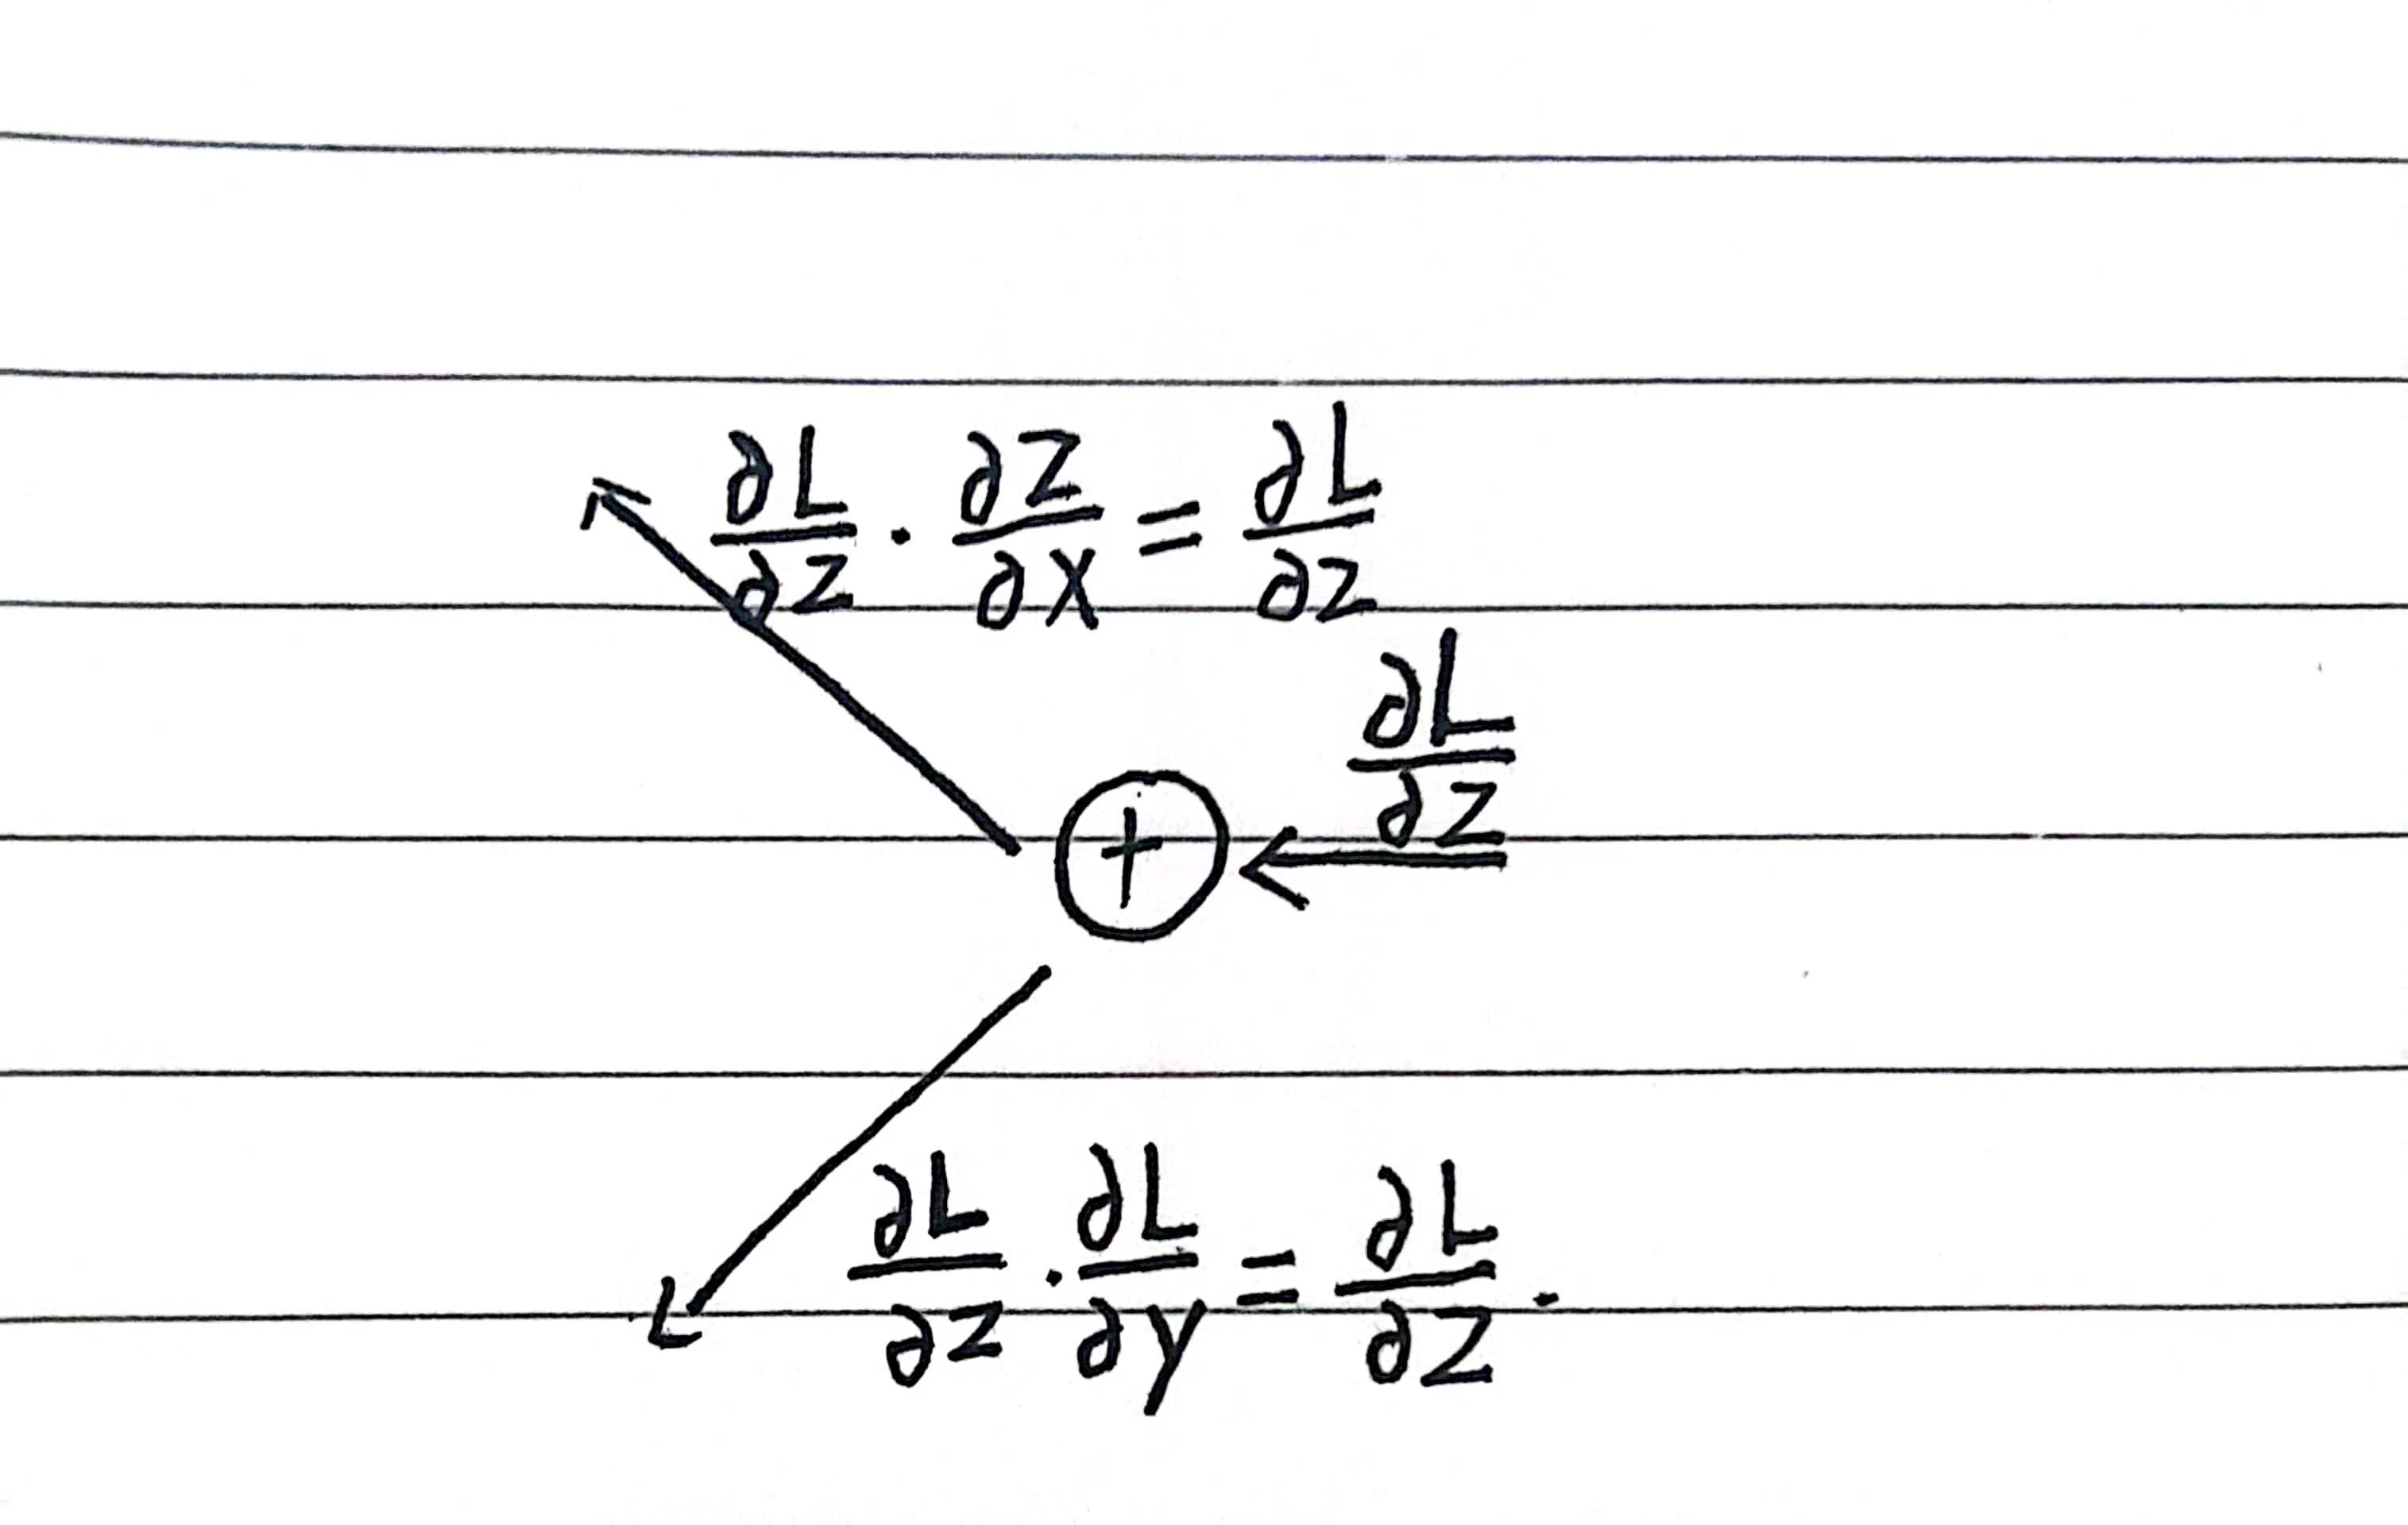 ∂L/∂z · ∂z/∂x = ∂L/∂z
∂L/∂z
+
∂L/∂z · ∂L/∂y = ∂L/∂z .